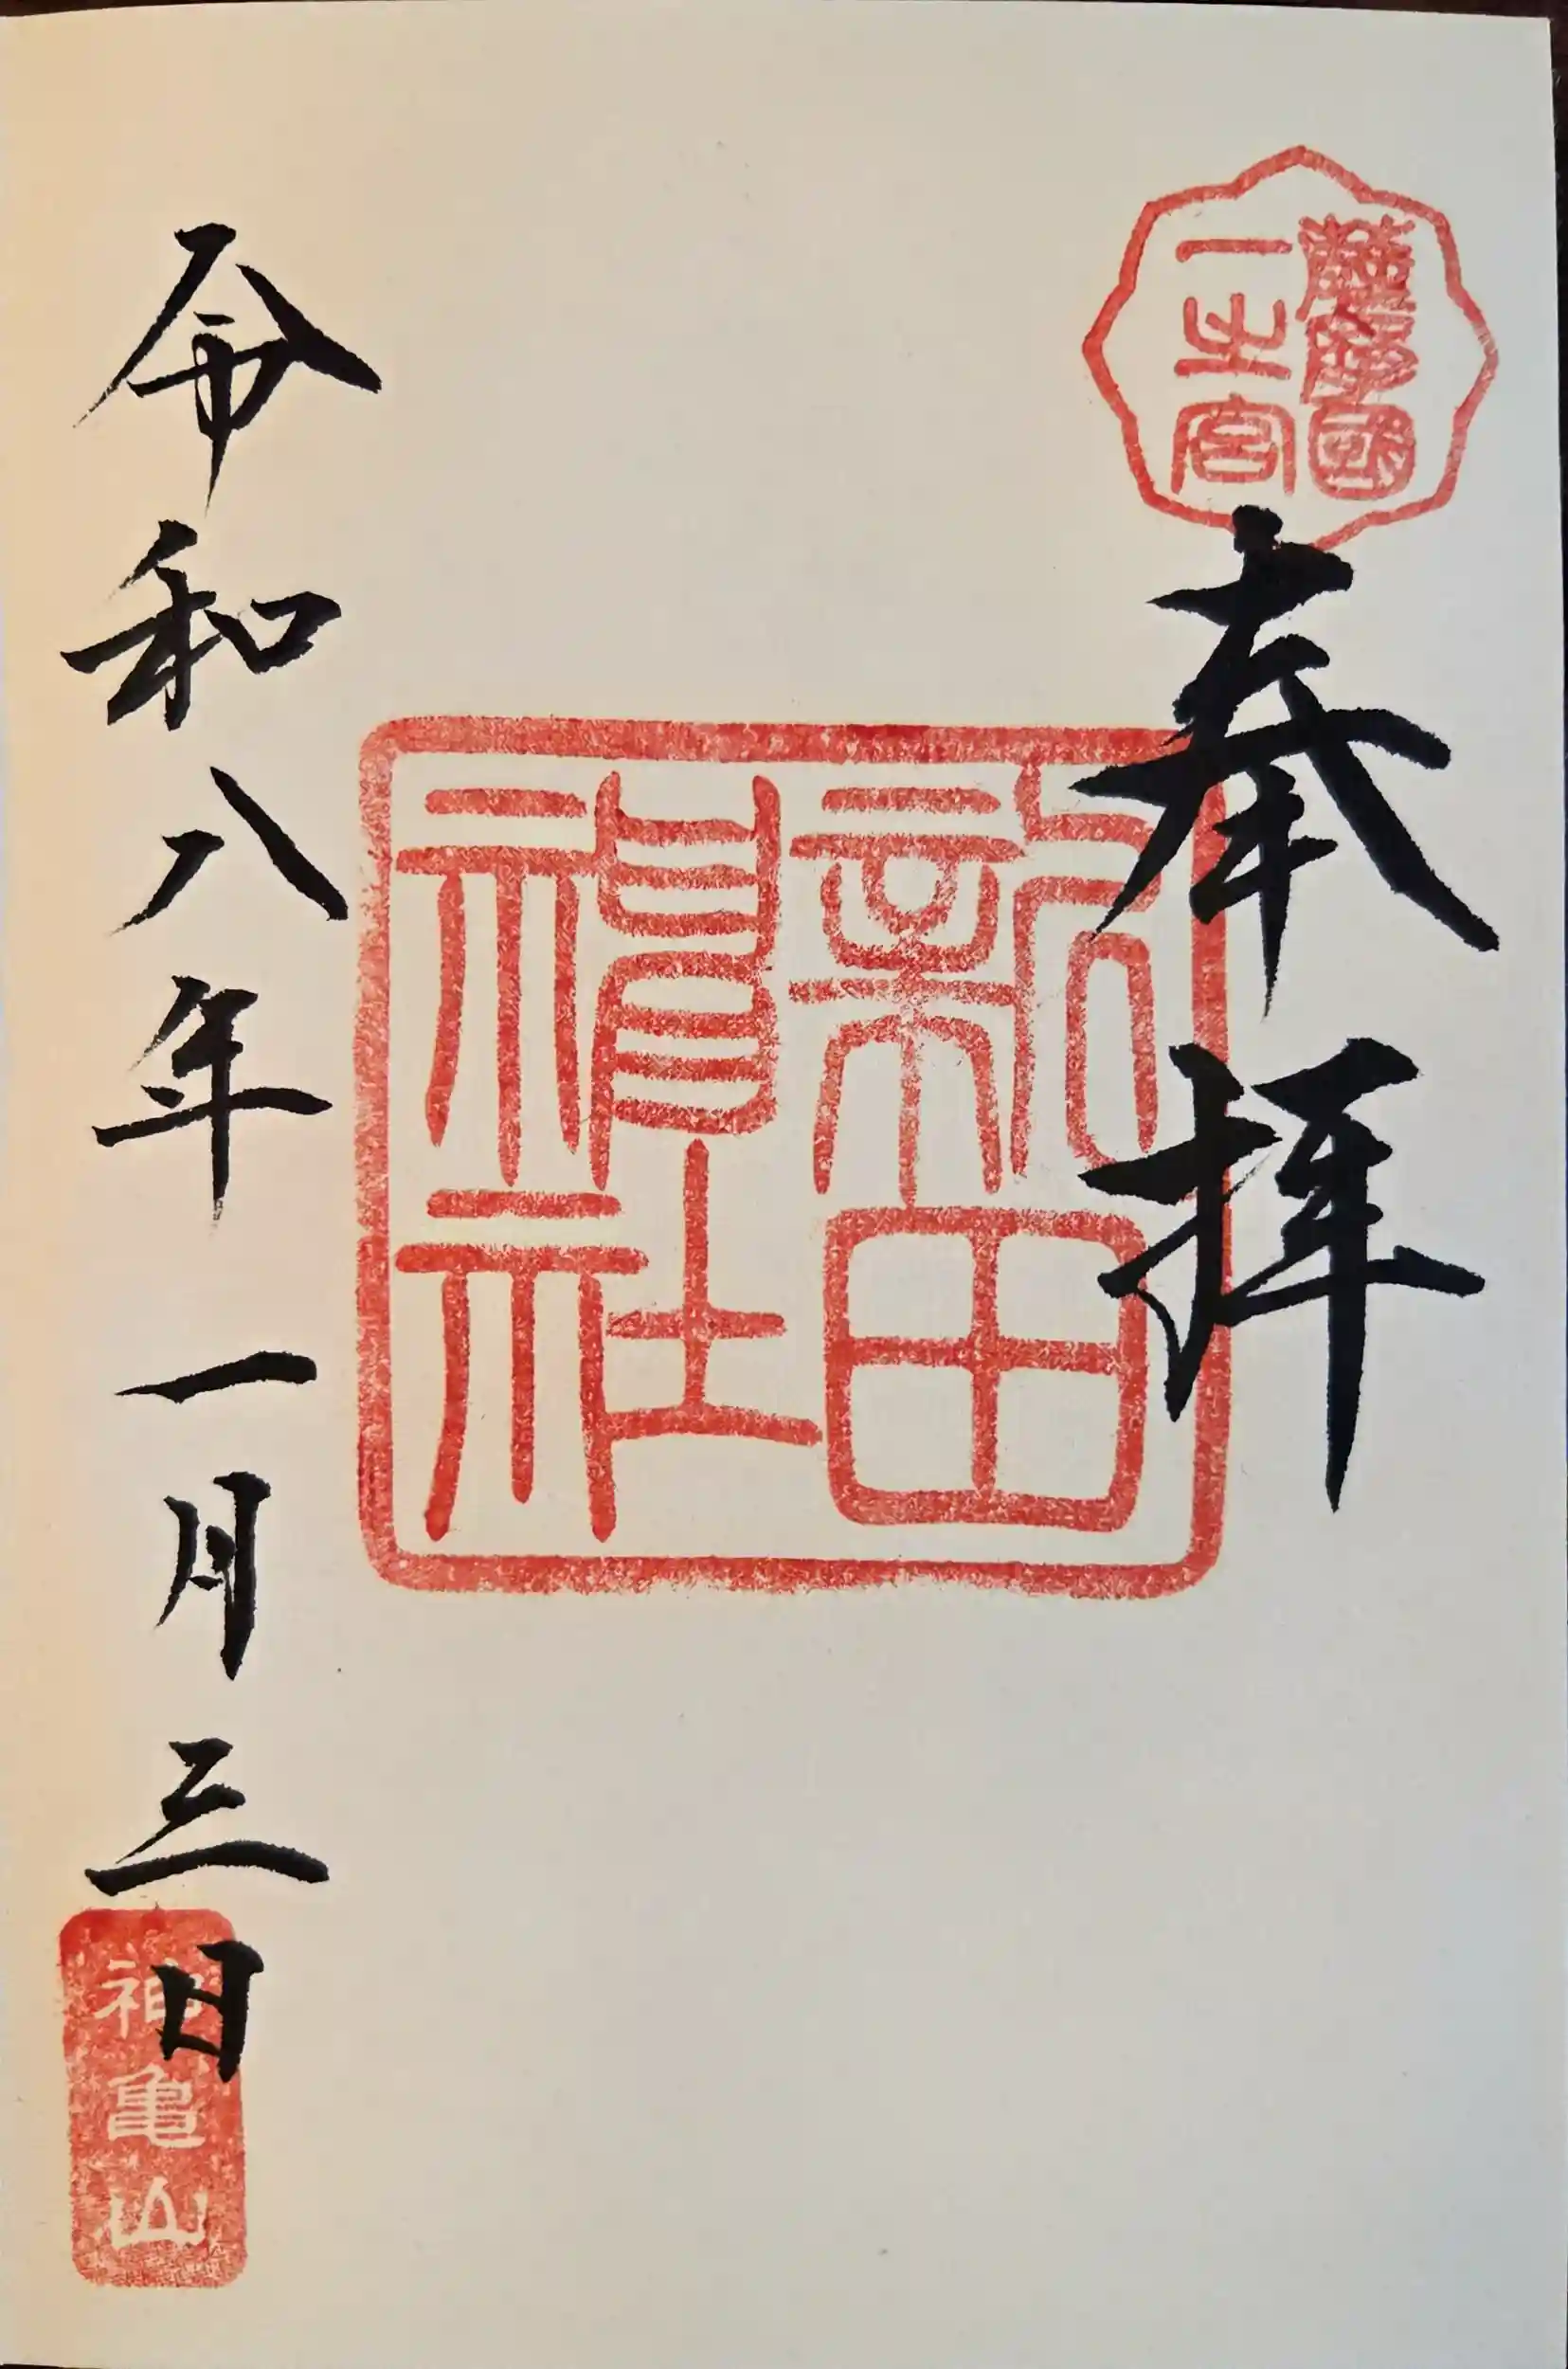 薩摩國
一之宮
奉拝
新田
神社
令和八年一月三日
神亀山